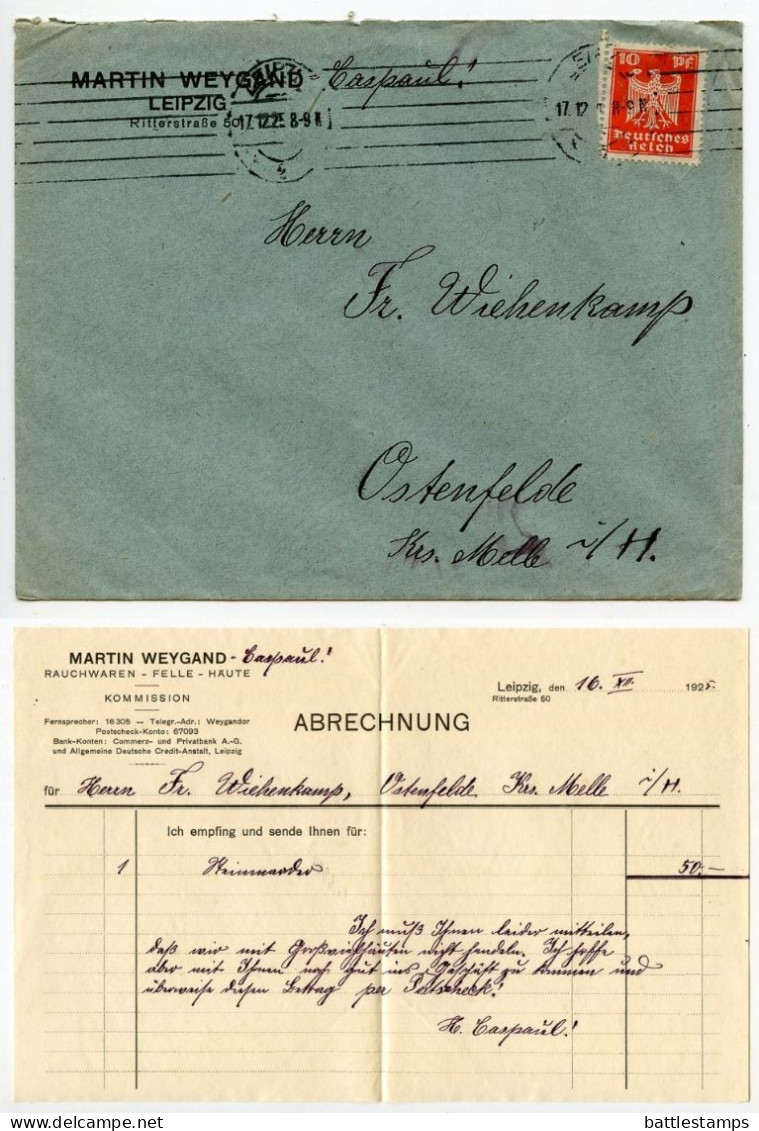 MARTIN WEYGAND Caspaul!
LEIPZIG
Ritterstraße 50
LEIPZIG
17.12.25 8-9 N
2
17.12 8-9 N
10 Pf
Deutsches
Reich
Herrn
Fr. Wiehenkamp
Ostenfelde
Krs. Melle i/H.
MARTIN WEYGAND - Caspaul!
RAUCHWAREN - FELLE - HÄUTE
KOMMISSION
Fernsprecher: 16305 — Telegr.-Adr.: Weygandor
Postscheck-Konto: 67093
Bank-Konten: Commerz- und Privatbank A.-G.
und Allgemeine Deutsche Credit-Anstalt, Leipzig
Leipzig, den 16. XII. 1925.
Ritterstraße 50
ABRECHNUNG
für Herrn Fr. Wiehenkamp, Ostenfelde Krs. Melle i/H.
Ich empfing und sende Ihnen für:
1 Steinmarder 50.—
Ich muß Ihnen leider mitteilen,
daß wir mit Großviehhäuten nicht handeln. Ich hoffe
aber mit Ihnen noch gut ins Geschäft zu kommen und
überweise diesen Betrag per Postscheck!
H. Caspaul!
All rights reserved
battlestamps